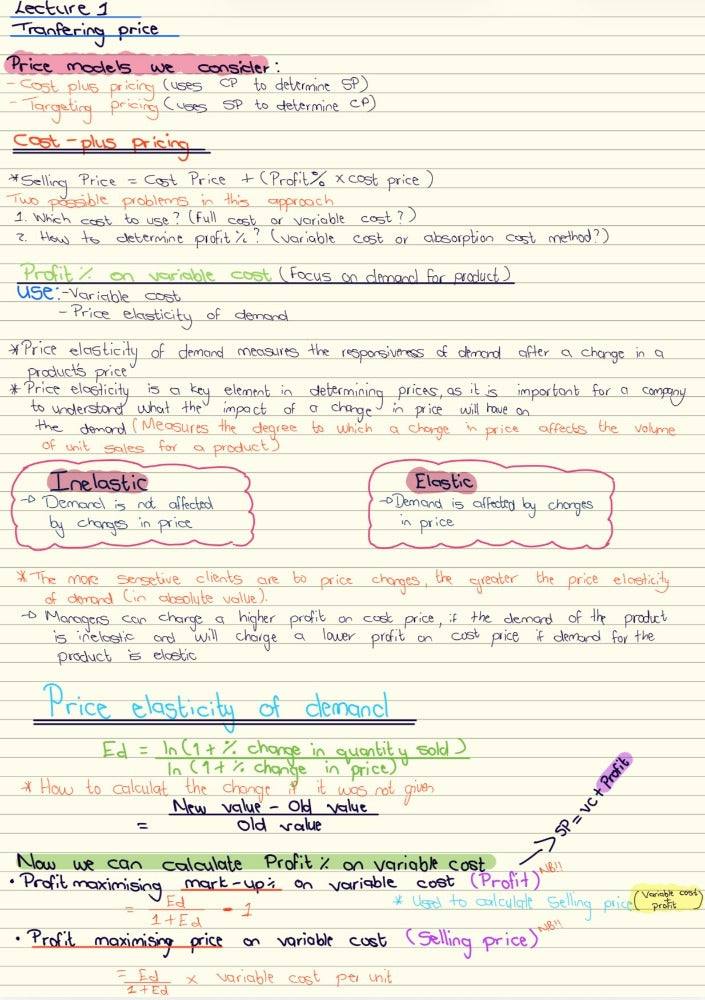 Lecture 1
Tranfering price
Price models we consider:
- Cost plus pricing (uses CP to determine SP)
- Targeting pricing (uses SP to determine CP)
Cost-plus pricing
* Selling Price = Cost Price + (Profit% x cost price)
Two possible problems in this approach
1. Which cost to use? (Full cost or variable cost?)
2. How to determine profit%? (variable cost or absorption cost method?)
Profit% on variable cost (Focus on demand for product)
use: - Variable cost
- Price elasticity of demand
* Price elasticity of demand measures the responsiveness of demand after a change in a
product's price
* Price elasticity is a key element in determining prices, as it is important for a company
to understand what the impact of a change in price will have on
the demand (Measures the degree to which a change in price affects the volume
of unit sales for a product)
Inelastic
→ Demand is not affected
by changes in price
Elastic
→ Demand is affected by changes
in price
* The more sensetive clients are to price changes, the greater the price elasticity
of demand (in absolute value).
→ Managers can charge a higher profit on cost price, if the demand of the product
is inelastic and will charge a lower profit on cost price if demand for the
product is elastic
Price elasticity of demand
Ed = ln(1 + % change in quantity sold)
ln(1 + % change in price)
* How to calculat the change if it was not given
New value - Old value
= Old value
SP = VC + Profit
Now we can calculate Profit% on variable cost
• Profit maximising mark-up% on variable cost (Profit) NB!!
= Ed / 1 + Ed - 1
* Used to calculate Selling price (Variable cost + Profit)
• Profit maximising price on variable cost (Selling price) NB!!
= Ed / 1+Ed x variable cost per unit